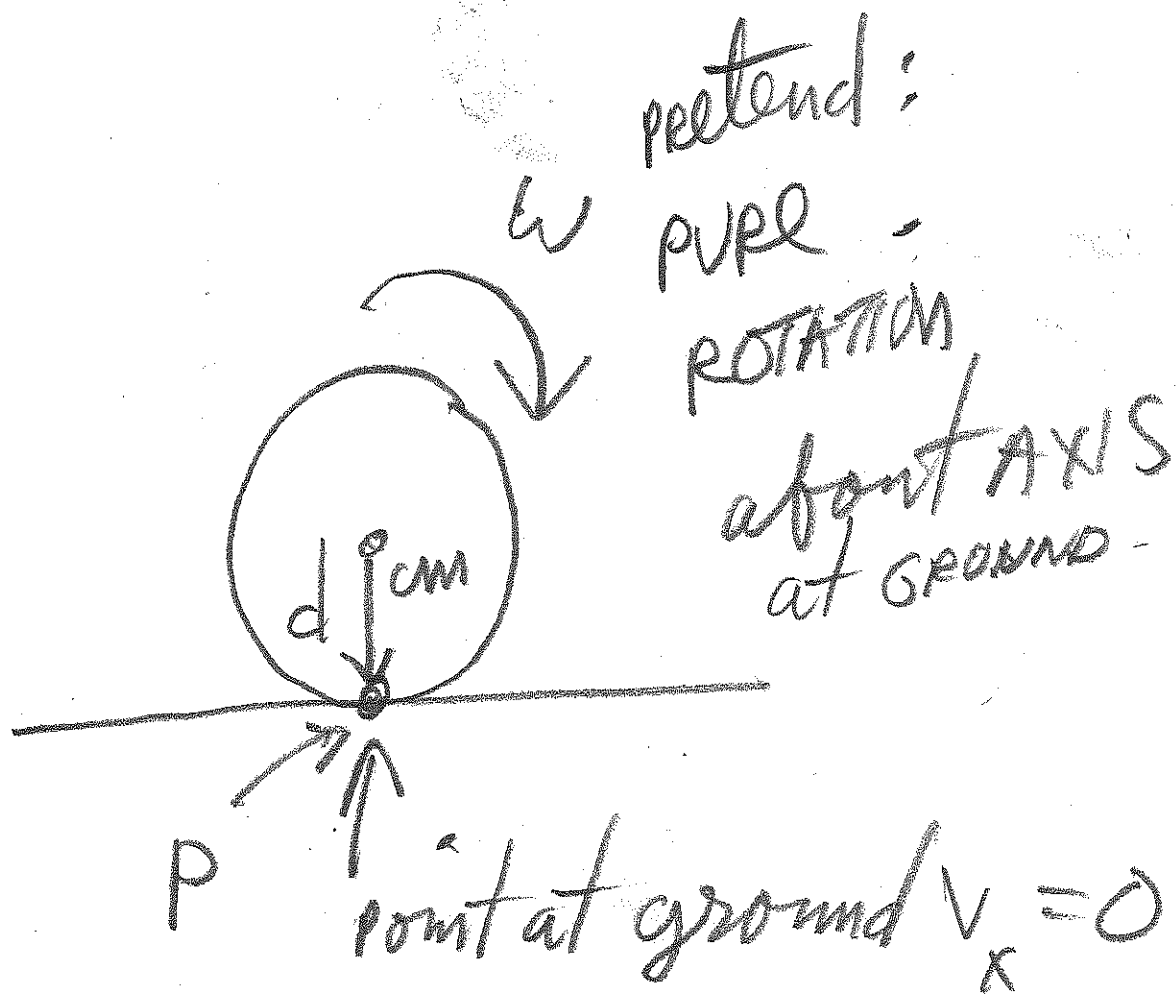 pretend :
ω PURE
ROTATION
about AXIS
at GROUND
cm
d
P
point at ground Vx = 0